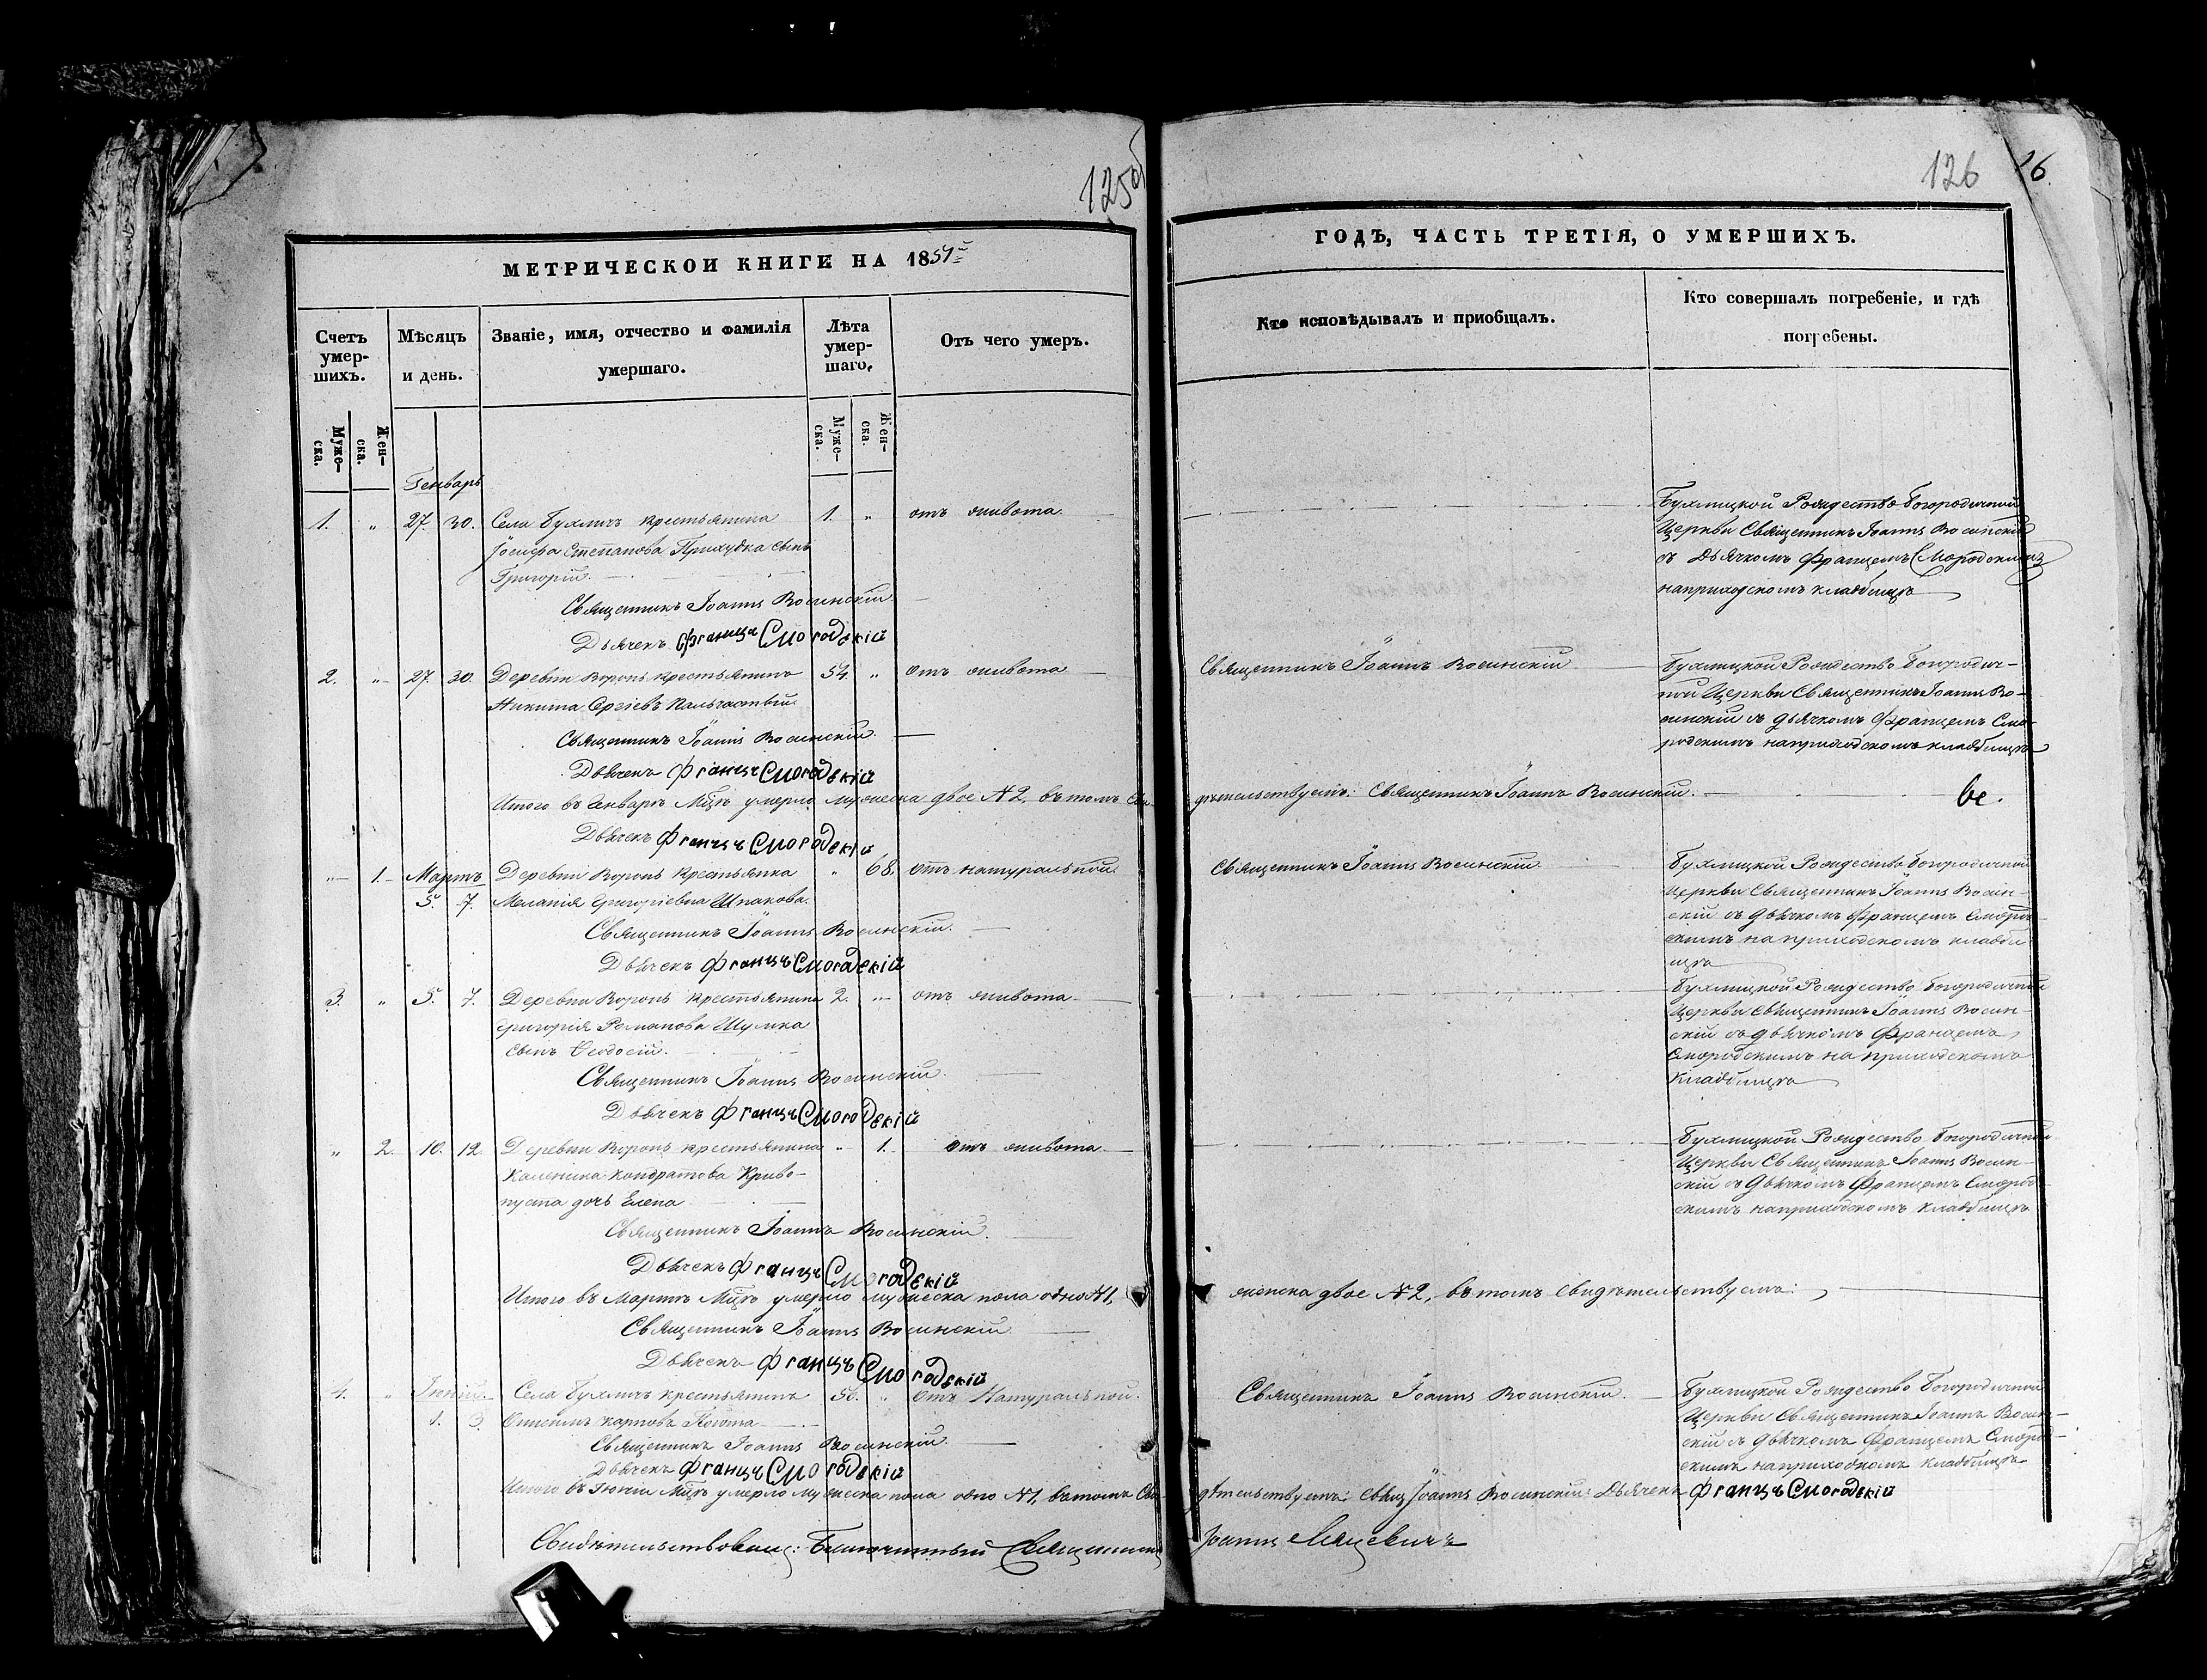 125об
126
26.
МЕТРИЧЕСКОИ КНИГИ НА 1854й
ГОДЪ, ЧАСТЬ ТРЕТІЯ, О УМЕРШИХЪ.
Счетъ умер-шихъ.
Муже-ска.
Жен-ска.
Мѣсяцъ и день.
Званіе, имя, отчество и фамилія умершаго.
Лѣта умер-шаго.
Муже-ска.
Жен-ска.
Отъ чего умеръ.
Кто исповѣдывалъ и приобщалъ.
Кто совершалъ погребеніе, и гдѣ погребены.
Генварь
1. „ 27. 30. Села Бухличъ крестьянина 1. „ отъ живота
Іосифа Степанова Приходка сынъ
Григорій.
Священникъ Іоаннъ Восинскій
Дьячекъ Францъ Смородскій
Бухлицкой Рождество Богородичной
Церкви Священникъ Іоаннъ Восинскій
съ Дьячкомъ Францемъ Смородскимъ
на приходскомъ кладбищѣ
2. „ 27. 30. Деревни Воронь крестьянинъ 54. „ отъ живота
Никита Сергіевъ
Священникъ Іоаннъ Восинскій.
Дьячекъ Францъ Смородскій
Священникъ Іоаннъ Восинскій
Бухлицкой Рождество Богородич-
ной Церкви Священникъ Іоаннъ Во-
синскій съ дьячкомъ Францемъ Смо-
родскимъ на приходскомъ кладбищѣ
Итого въ Генварѣ Мцѣ умерло мужеска двое №2, въ томъ Сви-
дѣтельствуемъ: Священникъ Іоаннъ Восинскій.
Дьячекъ Францъ Смородскій
„ 1. Мартъ Деревни Воронь Крестьянка „ 68. отъ натуральной
5. 7. Меланія Григоріевна Шпакова.
Священникъ Іоаннъ Восинскій.
Дьячекъ Францъ Смородскій
Священникъ Іоаннъ Восинскій
Бухлицкой Рождество Богородичной
Церкви Священникъ Іоаннъ Восин-
скій съ дьячкомъ Францемъ Смород-
скимъ на приходскомъ кладби-
щѣ
3. „ 5. 7. Деревни Воронь крестьянина 2. „ отъ живота
Григорія Романова Шумка
сынъ Ѳеодосій.
Священникъ Іоаннъ Восинскій.
Дьячекъ Францъ Смородскій
Бухлицкой Рождество Богородичной
Церкви Священникъ Іоаннъ Восин-
скій съ дьячкомъ Францемъ
Смородскимъ на приходскомъ
кладбищѣ
„ 2. 10. 12. Деревни Воронь крестьянина „ 1. отъ живота
Каленика Кондратова Криво-
пуста дочь Елена
Священникъ Іоаннъ Восинскій.
Дьячекъ Францъ Смородскій
Бухлицкой Рождество Богородичной
Церкви Священникъ Іоаннъ Восин-
скій съ дьячкомъ Францемъ Смород-
скимъ на приходскомъ кладбищѣ
Итого въ Мартѣ Мцѣ умерло мужеска пола одно №1,
женска двое №2, въ томъ свидѣтельствуемъ:
Священникъ Іоаннъ Восинскій
Дьячекъ Францъ Смородскій
4. „ Іюній. Села Бухличъ крестьянинъ 56. „ отъ Натуральной.
1. 3. Карповъ
Священникъ Іоаннъ Восинскій.
Дьячекъ Францъ Смородскій
Священникъ Іоаннъ Восинскій.
Бухлицкой Рождество Богородичной
Церкви Священникъ Іоаннъ Восин-
скій съ дьячкомъ Францемъ Смород-
скимъ на приходскомъ кладбищѣ
Итого въ Іюніи Мцѣ умерло мужеска пола одно №1, въ томъ Сви-
дѣтельствуемъ: Свящ Іоаннъ Восинскій Дьячекъ Францъ Смородскій
Свидѣтельствовалъ: Благочинный Священникъ Іоаннъ